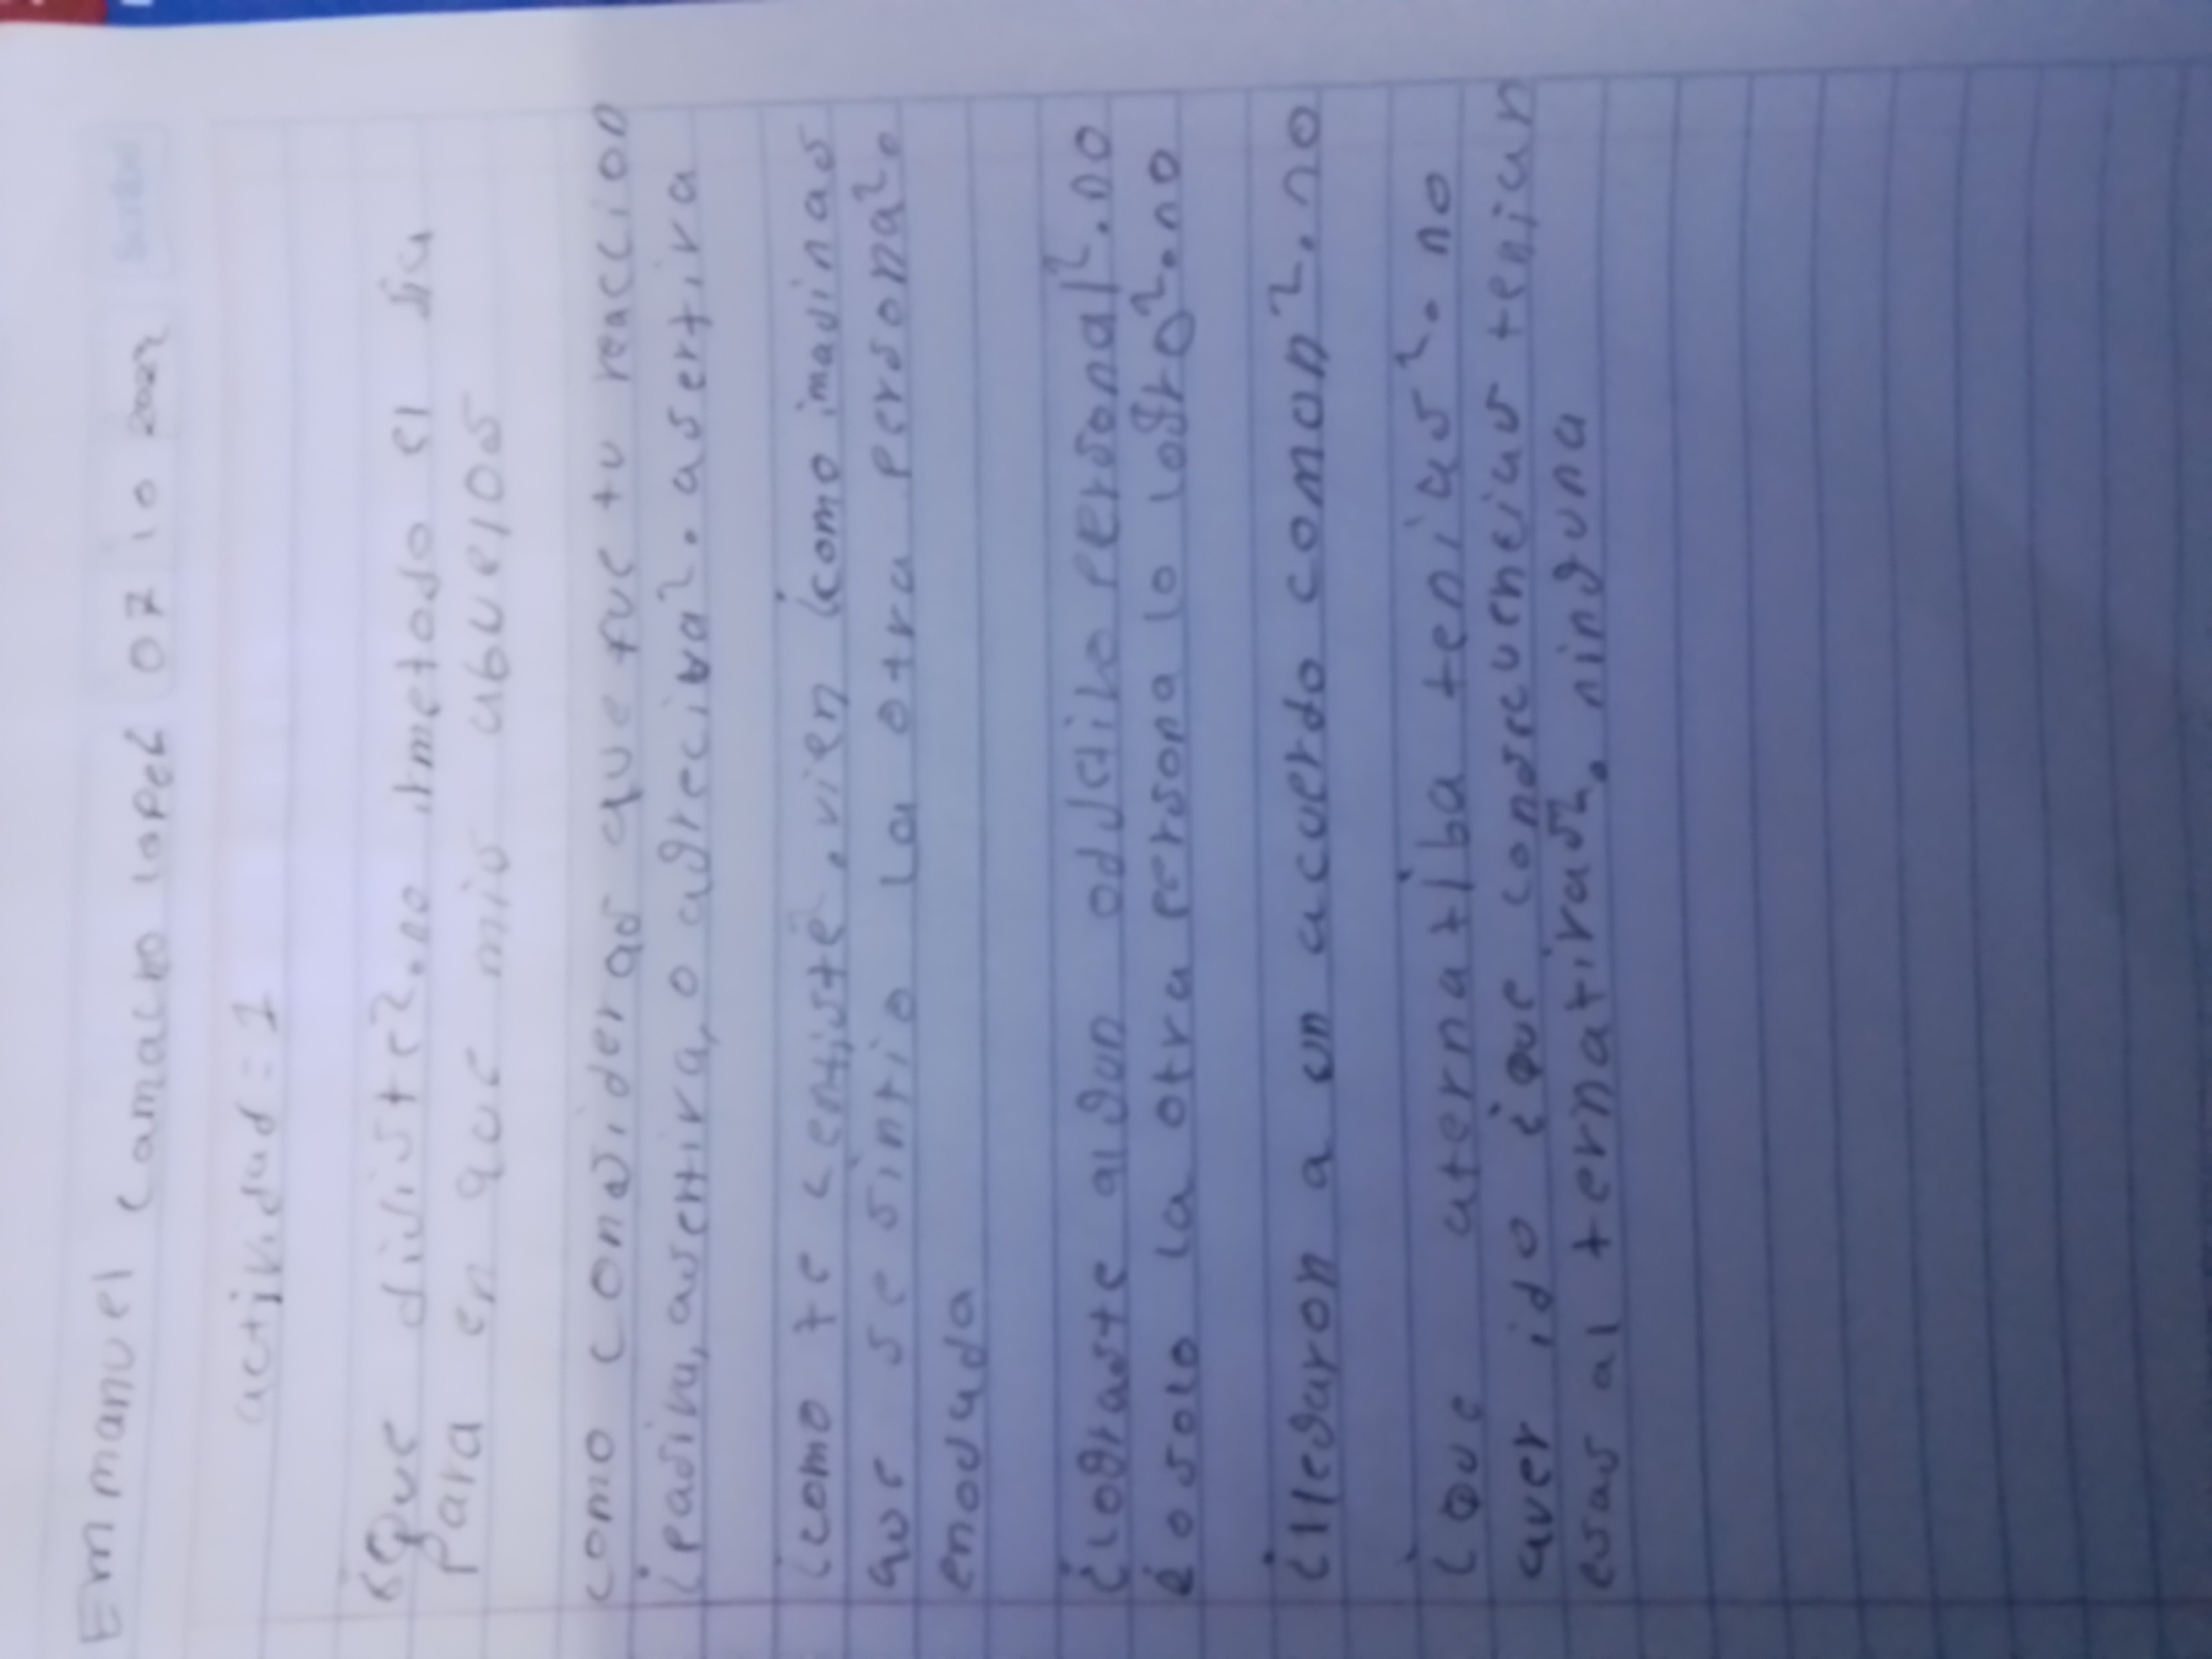 Emmanuel camacho lopez 07 10 2022
actividad = 1
¿Que divistez. no irmetodo el dia
Para en que mis abuelos
como consideras que fue tu reaccion
¿pasiva, asertiva, o agreciva?. asertiva
¿como te centiste. vien ¿como imadinas
que se sintio La otra persona?.
enodada
¿lograste algun oddetibo personal?. no
¿o solo la otra persona lo logro?. no
¿llegaron a un acuerdo comon?. no
¿Que aternatiba tenias?. no
aver ido ¿que consecuencias tenian
esas alternativas?. ninguna